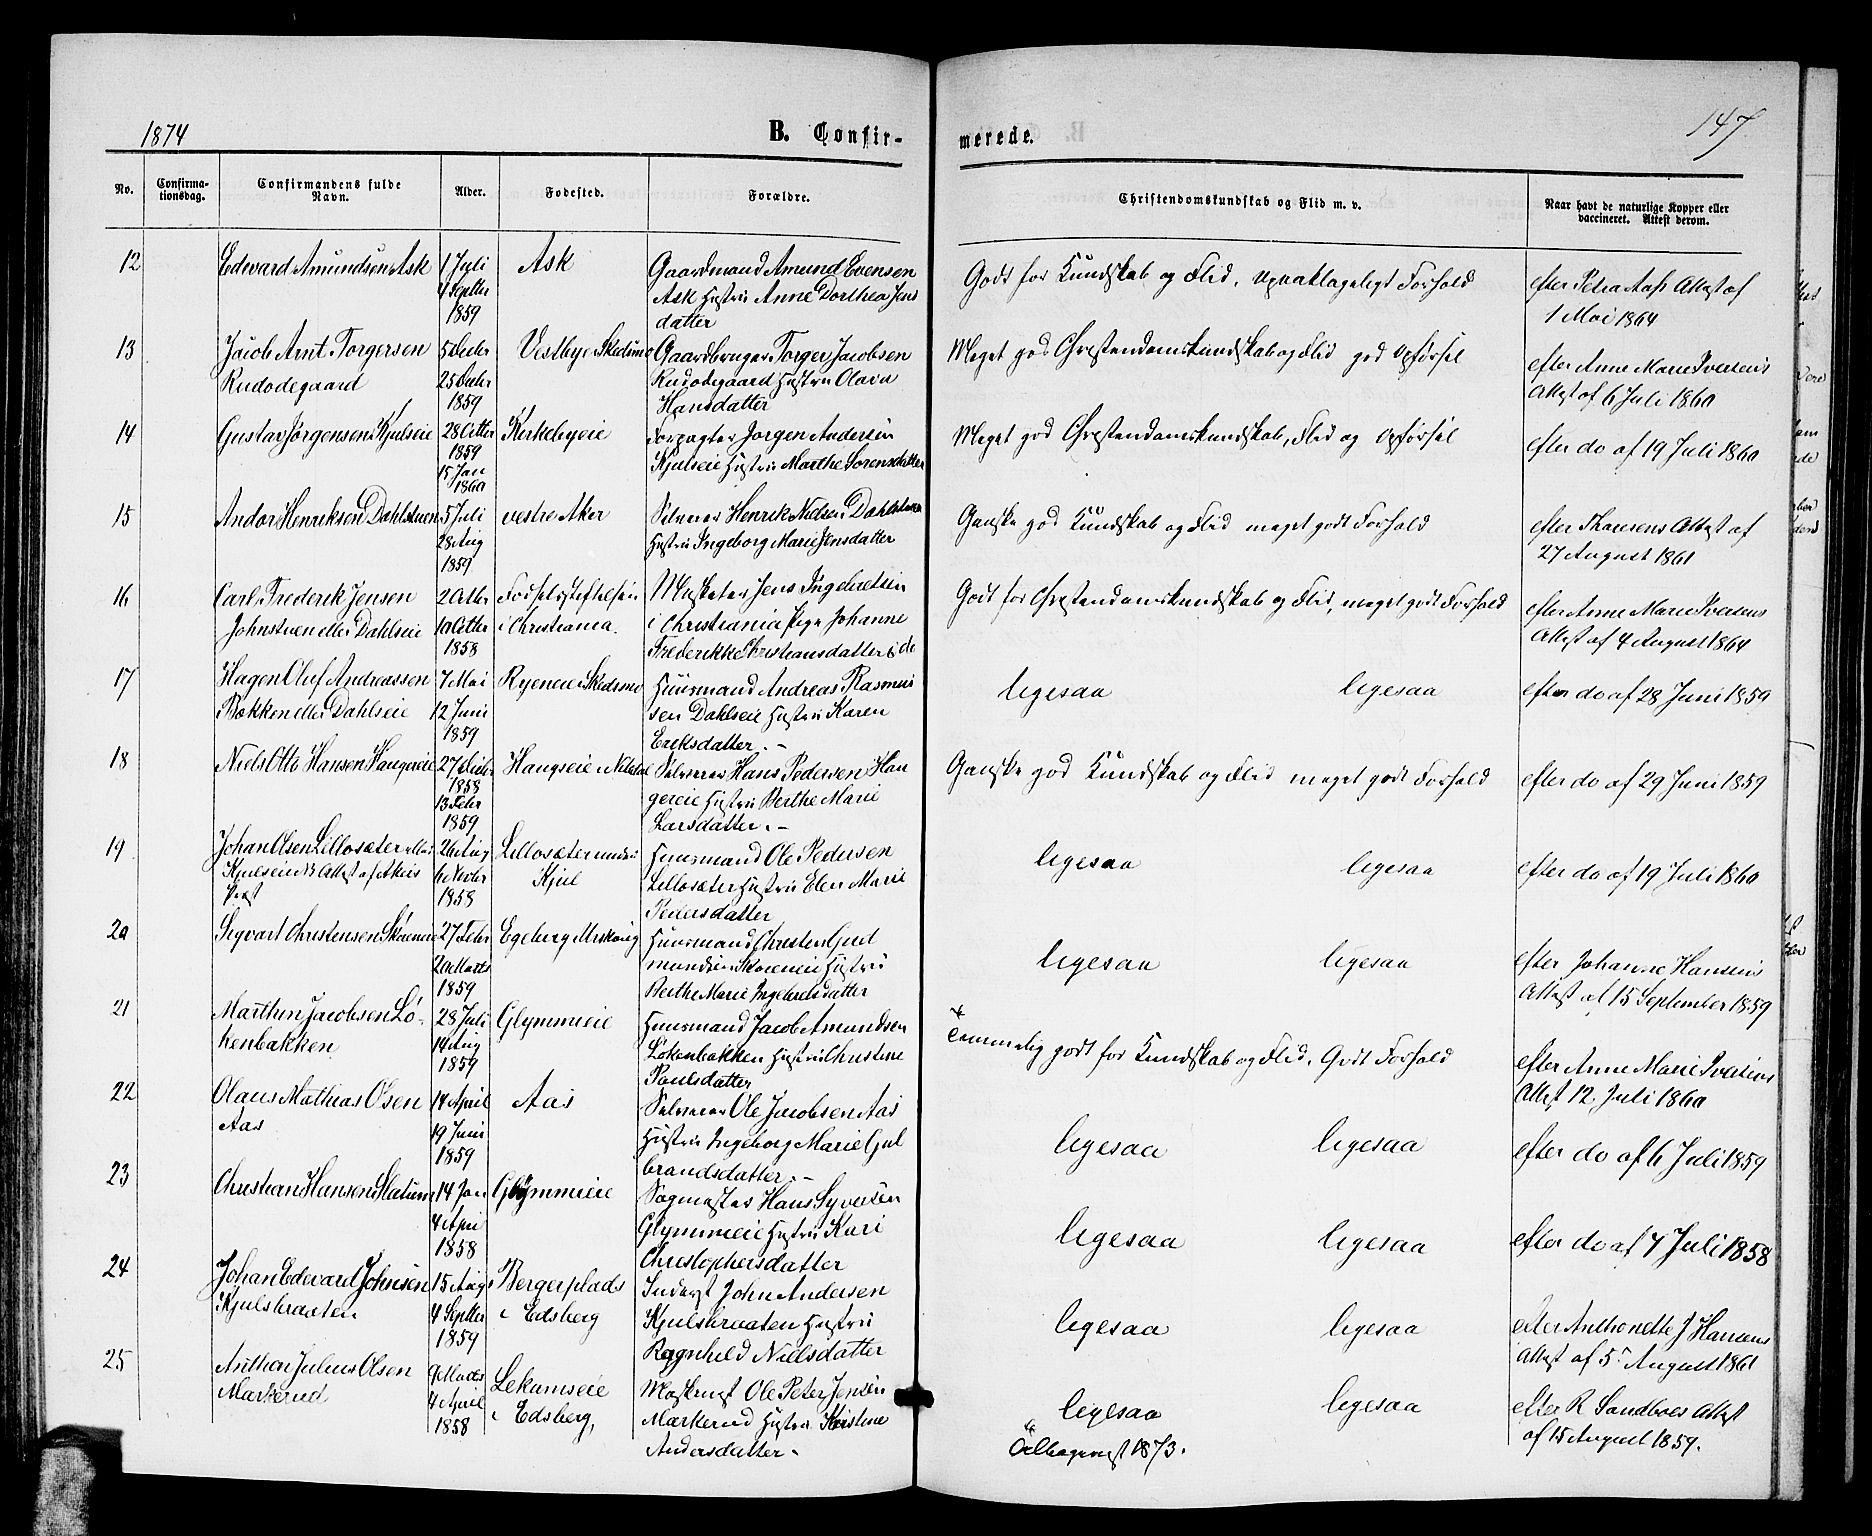 1874
B. Confir-
merede.
147
No.
Confirma-
tionsdag.
Confirmandens fulde
Navn.
Alder.
Fødested.
Forældre.
Christendomskundskab og Flid m. v.
Naar havt de naturlige Kopper eller
vaccineret. Attest derom.
12 Edevard Amundsen Ask 1 Juli Ask Gaardmand Amund Evensen Godt for Kundskab og Flid, upaaklageligt Forhold efter Petra Aass Attest af
4 Septbr Ask Hustru Anne Dorthea Jens 1 Mai 1864
1859 datter
13 Jacob Arnt Torgersen 5 Decbr Vestbye i Skedsmo Gaardbruger Torger Jacobsen Meget god Christendomskundskab og Flid god Opførsel efter Anne Marie Iversens
Rudodegaard 25 Decbr Rudodegaard Hustru Olava Attest af 6 Juli 1860
1859 Hansdatter
14 Gustav Jørgensen Kjulseie 28 Octbr Kirkebyeie Forpagter Jørgen Andersen Meget god Christendomskundskab, Flid og Opførsel efter do af 19 Juli 1860
1859 Kjulseie Hustru Marthe Sørensdatter
15 Jan
1860
15 Andor Henriksen Dahlstuen 5 Juli vestre Aker Selveier Henrik Nielsen Dahlstuen Ganske god Kundskab og Flid meget godt Forhold efter Attest af
28 Aug Hustru Ingeborg Marie Jensdatter 27 August 1861
1859
16 Carl Frederik Jensen 2 Octbr Fødselsstiftelsen Musketer Jens Ingebretsen Godt for Christendomskundskab og Flid, meget godt Forhold efter Anne Marie Iversens
Johnstuen eller Dahlseie 10 Octbr i Christiania. i Christiania Pige Johanne Attest af 4 August 1864
1858 Frederikke Christiansdatter i do
17 Hagen Oluf Andreassen 7 Mai Ryeneie i Skedsmo Huusmand Andreas Rasmus ligesaa ligesaa efter do af 28 Juni 1859
Bækken eller Dahlseie 12 Juni sen Dahlseie Hustru Karen
1859 Eriksdatter. -
18 Niels Otto Hansen Haugereie 27 Decbr Haugseie i Nitedal Selveier Hans Pedersen Hau Ganske god Kundskab og Flid meget godt Forhold efter do af 29 Juni 1859
1858 gereie Hustru Berthe Marie
13 Febr
1859 Larsdatter. -
19 Johan Olsen Lillosæter eller 26 Aug Lillosæter under Huusmand Ole Pedersen ligesaa ligesaa efter do af 19 Juli 1860
Kjulseie NB Attest af Akers 6 Novbr Kjul Lillosæter Hustru Elen Marie
Præst 1858 Pedersdatter
20 Sigvart Christensen Skøieneie 27 Febr Egeberg Urskoug Huusmand Christen Gud ligesaa ligesaa efter Johanne Hansens
20 Marts mundsen Skøieneie Hustru Attest af 15 September 1859
1859 Berthe Marie Ingebretsdatter
21 Marthin Jacobsen Lø- 28 Juli Glymmieie Huusmand Jacob Amundsen Temmelig godt for Kundskab og Flid. Godt Forhold efter Anne Marie Iversens
kenbakken 14 Aug Løkenbakken Hustru Christine Attest 12 Juli 1860
1859 Paulsdatter
22 Olaus Mathias Olsen 14 April Aas Selveier Ole Jacobsen Aas ligesaa ligesaa efter do af 6 Juli 1859
Aas 19 Juni Hustru Ingeborg Marie Gul
1859 brandsdatter. -
23 Christian Hansen Slatum 14 Jan Glymmieie Sagmester Hans Syversen ligesaa ligesaa efter do af 7 Juli 1858
4 Apri Glymmieie Hustru Kari
1858 Christophersdatter
24 Johan Edevard Johnsen 15 Aug Bergerplads Inderst John Andersen ligesaa ligesaa efter Anthonette J Hansens
Kjulsbraaten 4 Septbr i Edsberg Kjulsbraaten Hustru Attest af 5 August 1861
1859 Ragnhild Nielsdatter
25 Anthon Julius Olsen 9 Marts Lekumseie Ole Peter Jensen ligesaa ligesaa efter R Sandboes Attest
Markerud 4 April i Edsberg, Markerud Hustru Kristine af 15 August 1859.
1858 Andersdatter - Tilbagevist 1873.